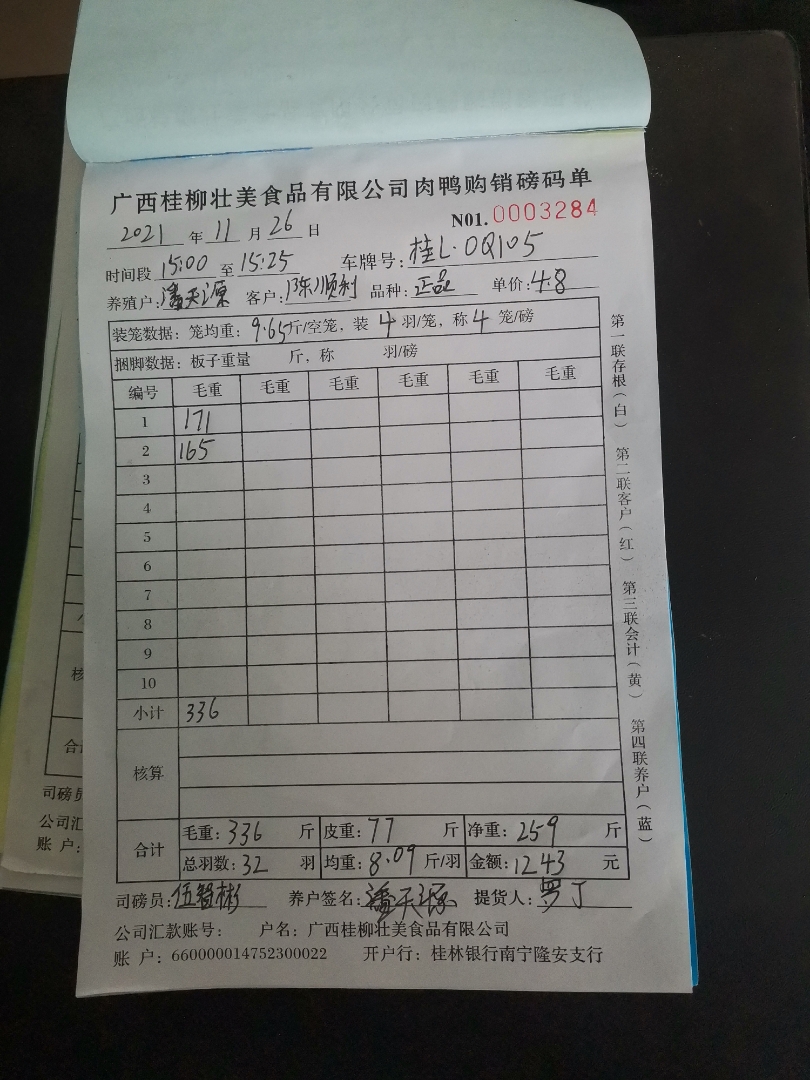 广西桂柳壮美食品有限公司肉鸭购销磅码单
2021 年 11 月 26 日 N01. 0003284
时间段 15:00 至 15:25 车牌号: 桂L·0Q105
养殖户: 潘天源 客户: 陈顺利 品种: 正品 单价: 4.8
装笼数据: 笼均重: 9.65斤/空笼, 装 4 羽/笼, 称 4 笼/磅
捆脚数据: 板子重量 斤, 称 羽/磅
编号 毛重 毛重 毛重 毛重 毛重 毛重
1 171
2 165
3
4
5
6
7
8
9
10
小计 336
核算
合计 毛重: 336 斤 皮重: 77 斤 净重: 259 斤
总羽数: 32 羽 均重: 8.09 斤/羽 金额: 1243 元
司磅员: 伍智彬 养户签名: 潘天源 提货人: 罗丁
公司汇款账号: 户名: 广西桂柳壮美食品有限公司
账 户: 660000014752300022 开户行: 桂林银行南宁隆安支行
第一联存根(白) 第二联客户(红) 第三联会计(黄) 第四联养户(蓝)
小
核
合计
司磅员
公司汇
账 户: